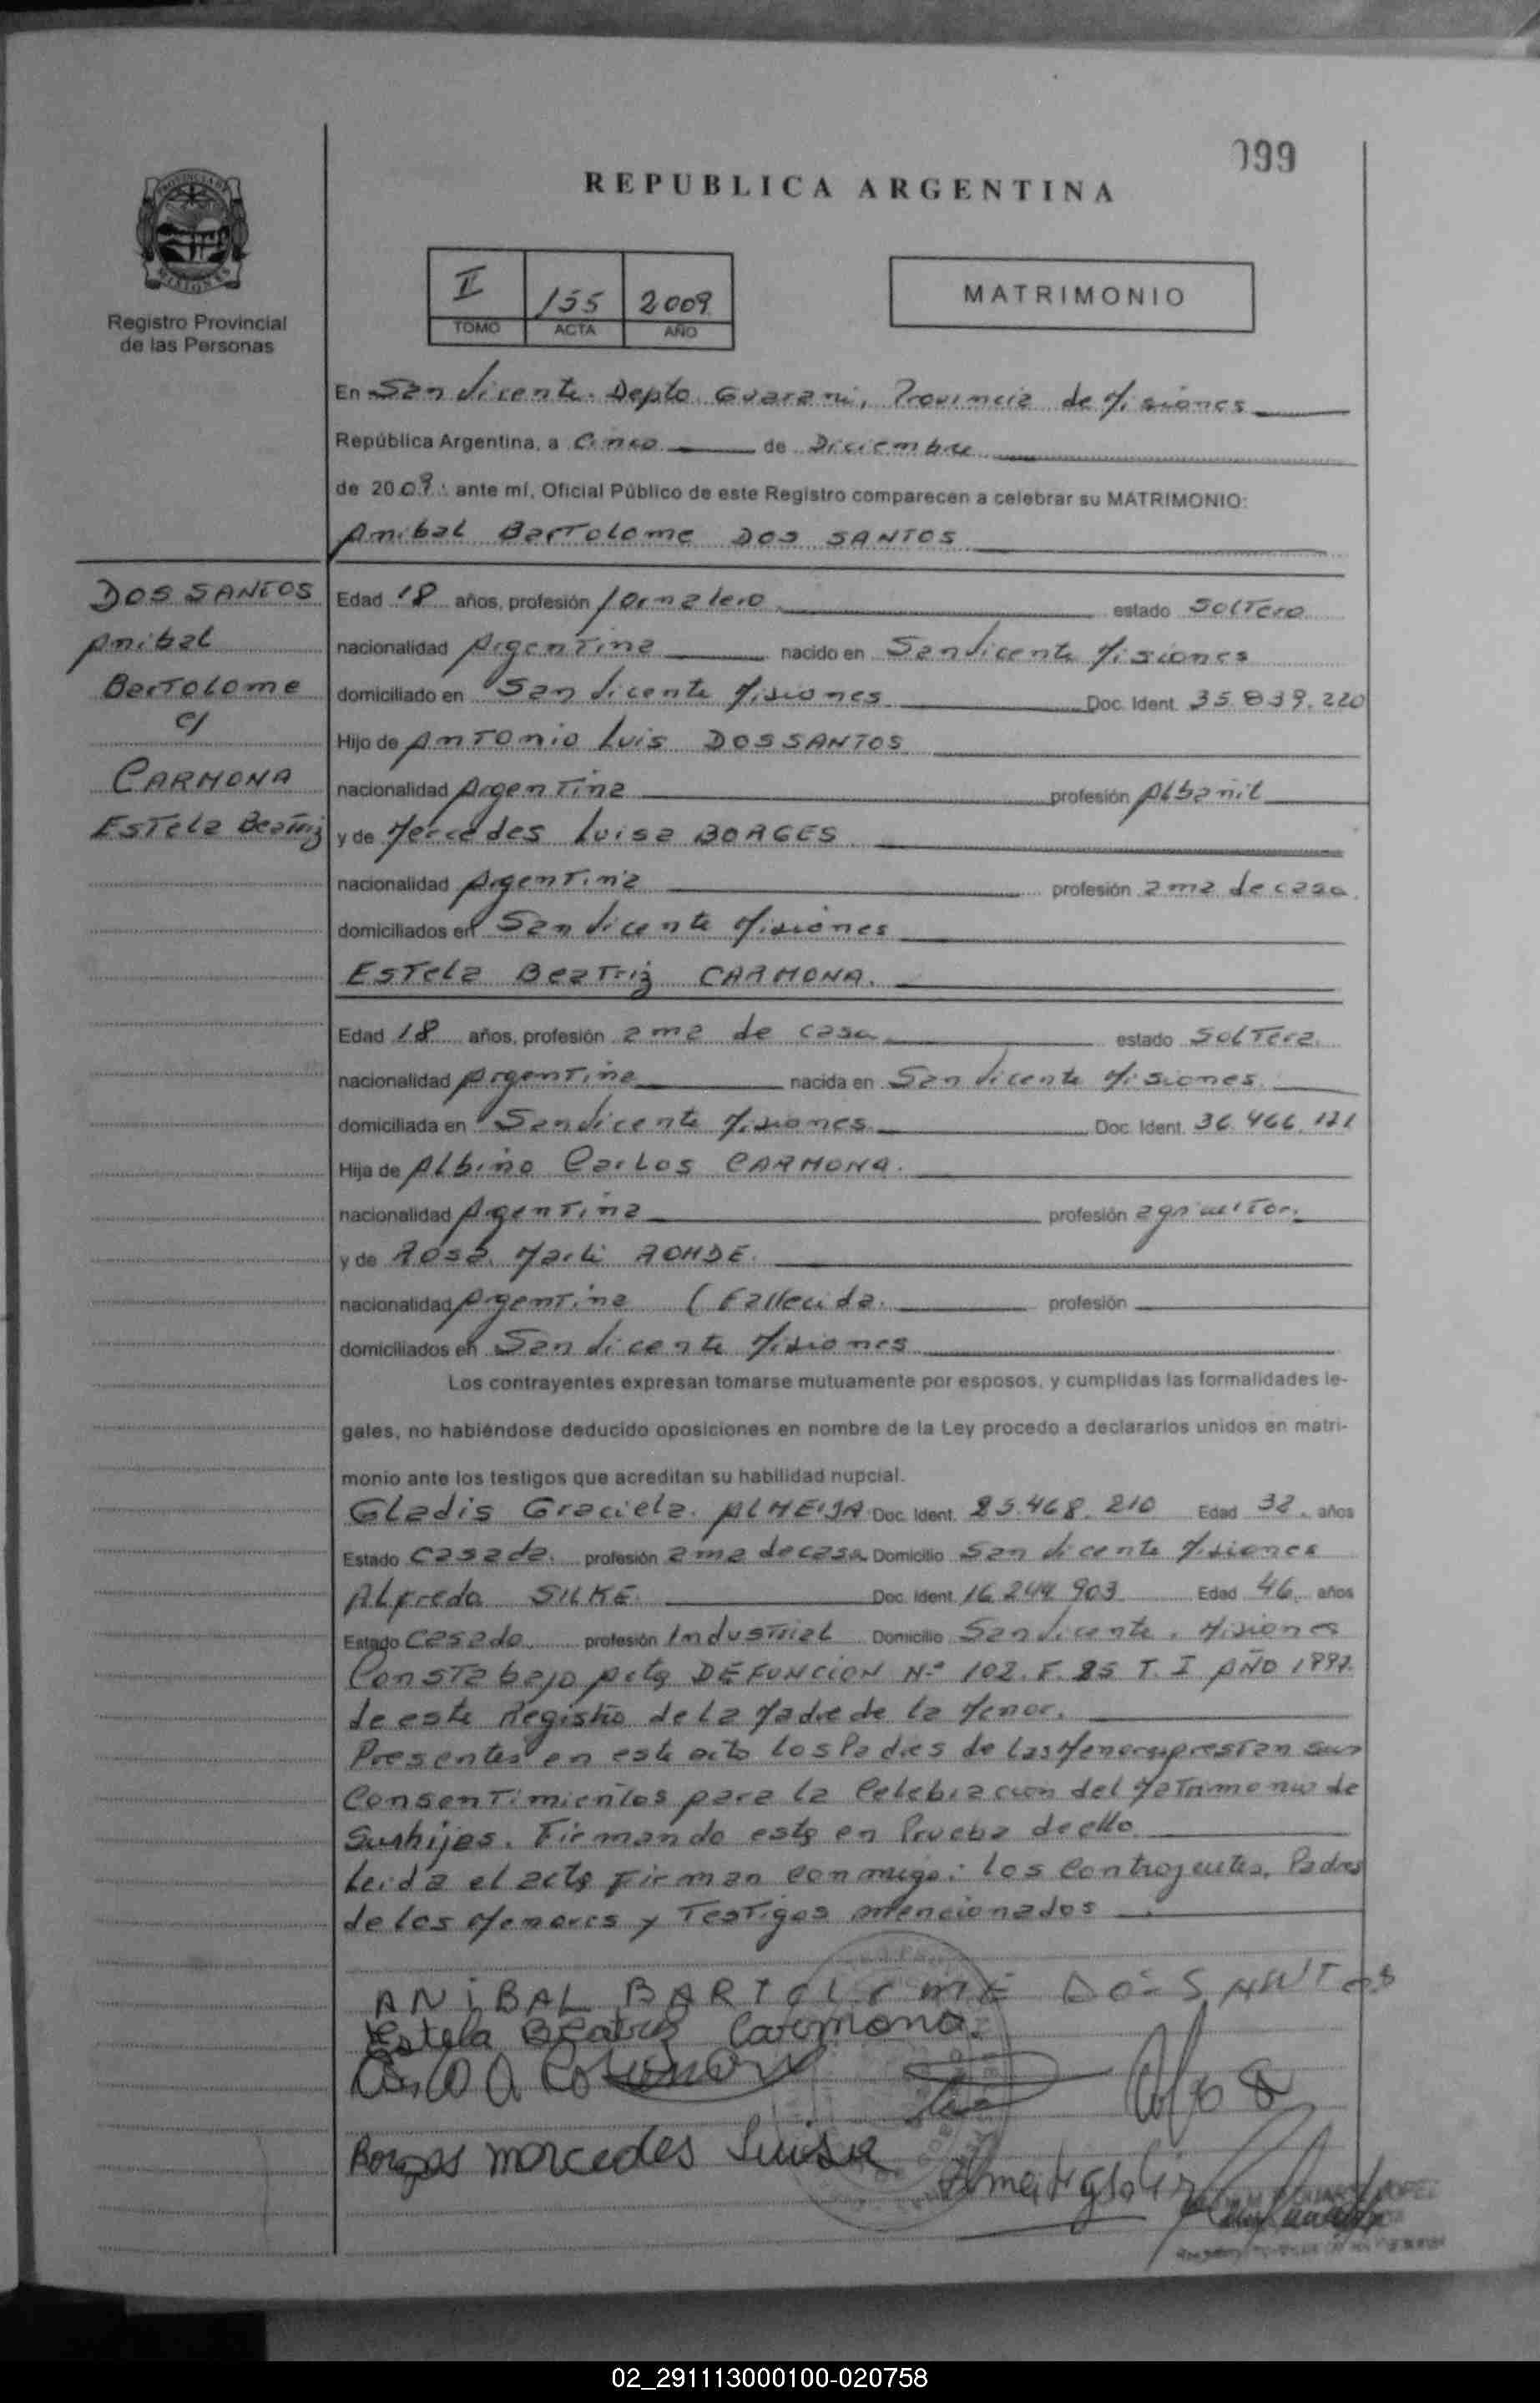 099
REPUBLICA ARGENTINA
PROVINCIA DE MISIONES
Registro Provincial
de las Personas
II 155 2009
TOMO ACTA AÑO
MATRIMONIO
En San Vicente. Depto Guarani, Provincia de Misiones
República Argentina, a Cinco de Diciembre
de 2009. ante mí, Oficial Público de este Registro comparecen a celebrar su MATRIMONIO:
Anibal Bartolome DOS SANTOS
DOS SANTOS
Anibal
Bartolome
c/
CARMONA
Estela Beatriz
Edad 18 años, profesión Jornalero estado Soltero
nacionalidad Argentina nacido en San Vicente Misiones
domiciliado en San Vicente Misiones Doc. Ident. 35.839.220
Hijo de Antonio Luis DOS SANTOS
nacionalidad Argentina profesión Albañil
y de Mercedes Luisa BORGES
nacionalidad Argentina profesión ama de casa
domiciliados en San Vicente Misiones
Estela Beatriz CARMONA.
Edad 18 años, profesión ama de casa estado Soltera.
nacionalidad Argentina nacida en San Vicente Misiones
domiciliada en San Vicente Misiones Doc. Ident. 36.466.121
Hija de Albino Carlos CARMONA.
nacionalidad Argentina profesión agricultor.
y de Rosa Marli ROHDE.
nacionalidad Argentina (Fallecida. profesión
domiciliados en San Vicente Misiones
Los contrayentes expresan tomarse mutuamente por esposos, y cumplidas las formalidades le-
gales, no habiéndose deducido oposiciones en nombre de la Ley procedo a declararlos unidos en matri-
monio ante los testigos que acreditan su habilidad nupcial.
Gladis Graciela. ALMEIDA Doc. Ident. 25.468.210 Edad 32. años
Estado Casada. profesión ama de casa Domicilio San Vicente Misiones
Alfredo SILKE Doc. Ident. 16.244.903 Edad 46 años
Estado Casado profesión Industrial Domicilio San Vicente. Misiones
Consta bajo Acta DEFUNCION Nº 102. F. 25 T. I AÑO 1997.
de este Registro de la Madre de la Menor.
Presentes en este acto los Padres de los Menores prestan sus
Consentimientos para la Celebracion del Matrimonio de
Sus hijos. Firmando esta en Prueba de ello
Leida el acta Firman conmigo: los Contrayentes, Padres
de los Menores y Testigos mencionados
ANIBAL BARTOLOME DOS SANTOS
Estela Beatriz Carmona.
Borges Mercedes Luisa
02_291113000100-020758